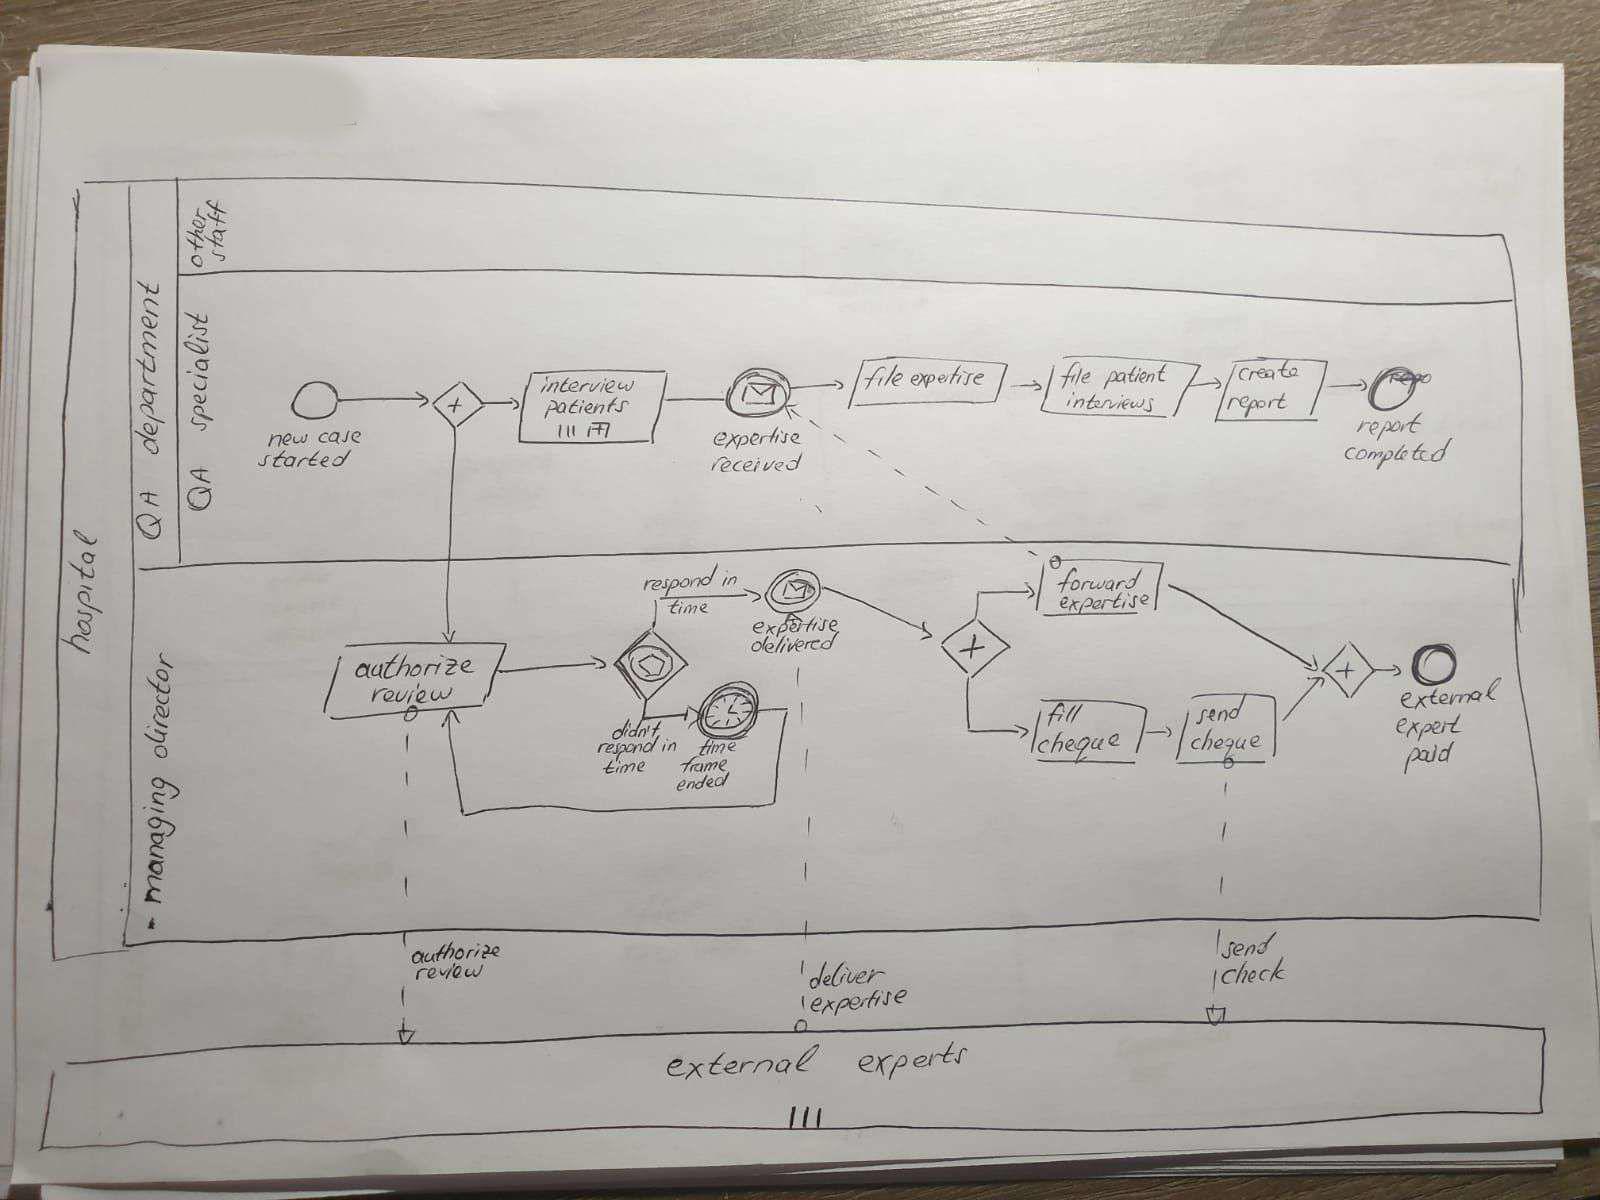 hospital
QA department
other
staff
QA specialist
new case
started
interview
patients
expertise
received
file expertise
file patient
interviews
create
report
report
completed
managing director
authorize
review
respond in
time
didn't
respond in
time
time
frame
ended
expertise
delivered
forward
expertise
fill
cheque
send
cheque
external
expert
paid
authorize
review
deliver
expertise
send
check
external experts